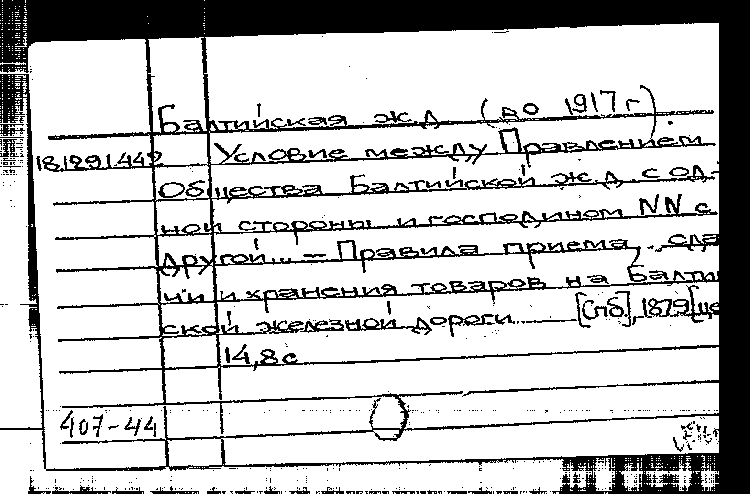 Балтийская ж.д. (до 1917 г.)
18.1291.442 Условие между Правлением
Общества Балтийской ж.д. с од-
ной стороны и господином NN с
другой... = Правила приема, сда
чи и хранения товаров на Балтий
ской железной дороги [Спб], 1879
14,8 с
407-44